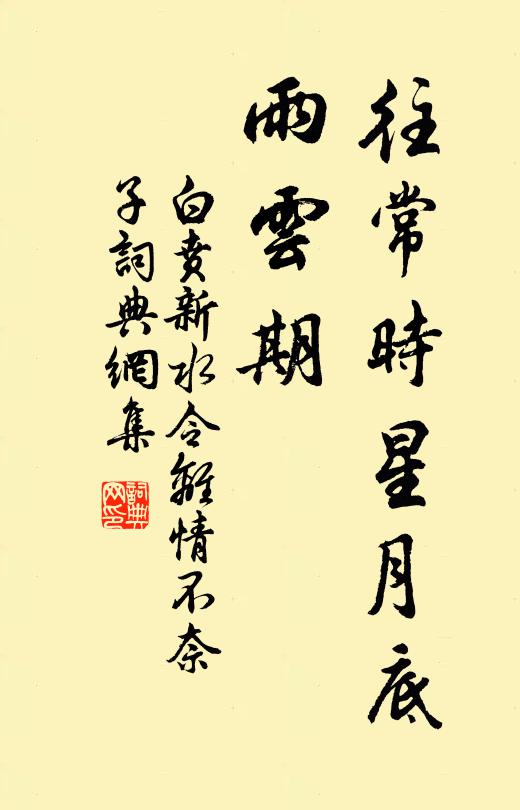 往常時星月底
雨雲期
白賁新水令離情不奈
子詞典網集
詞典
网印